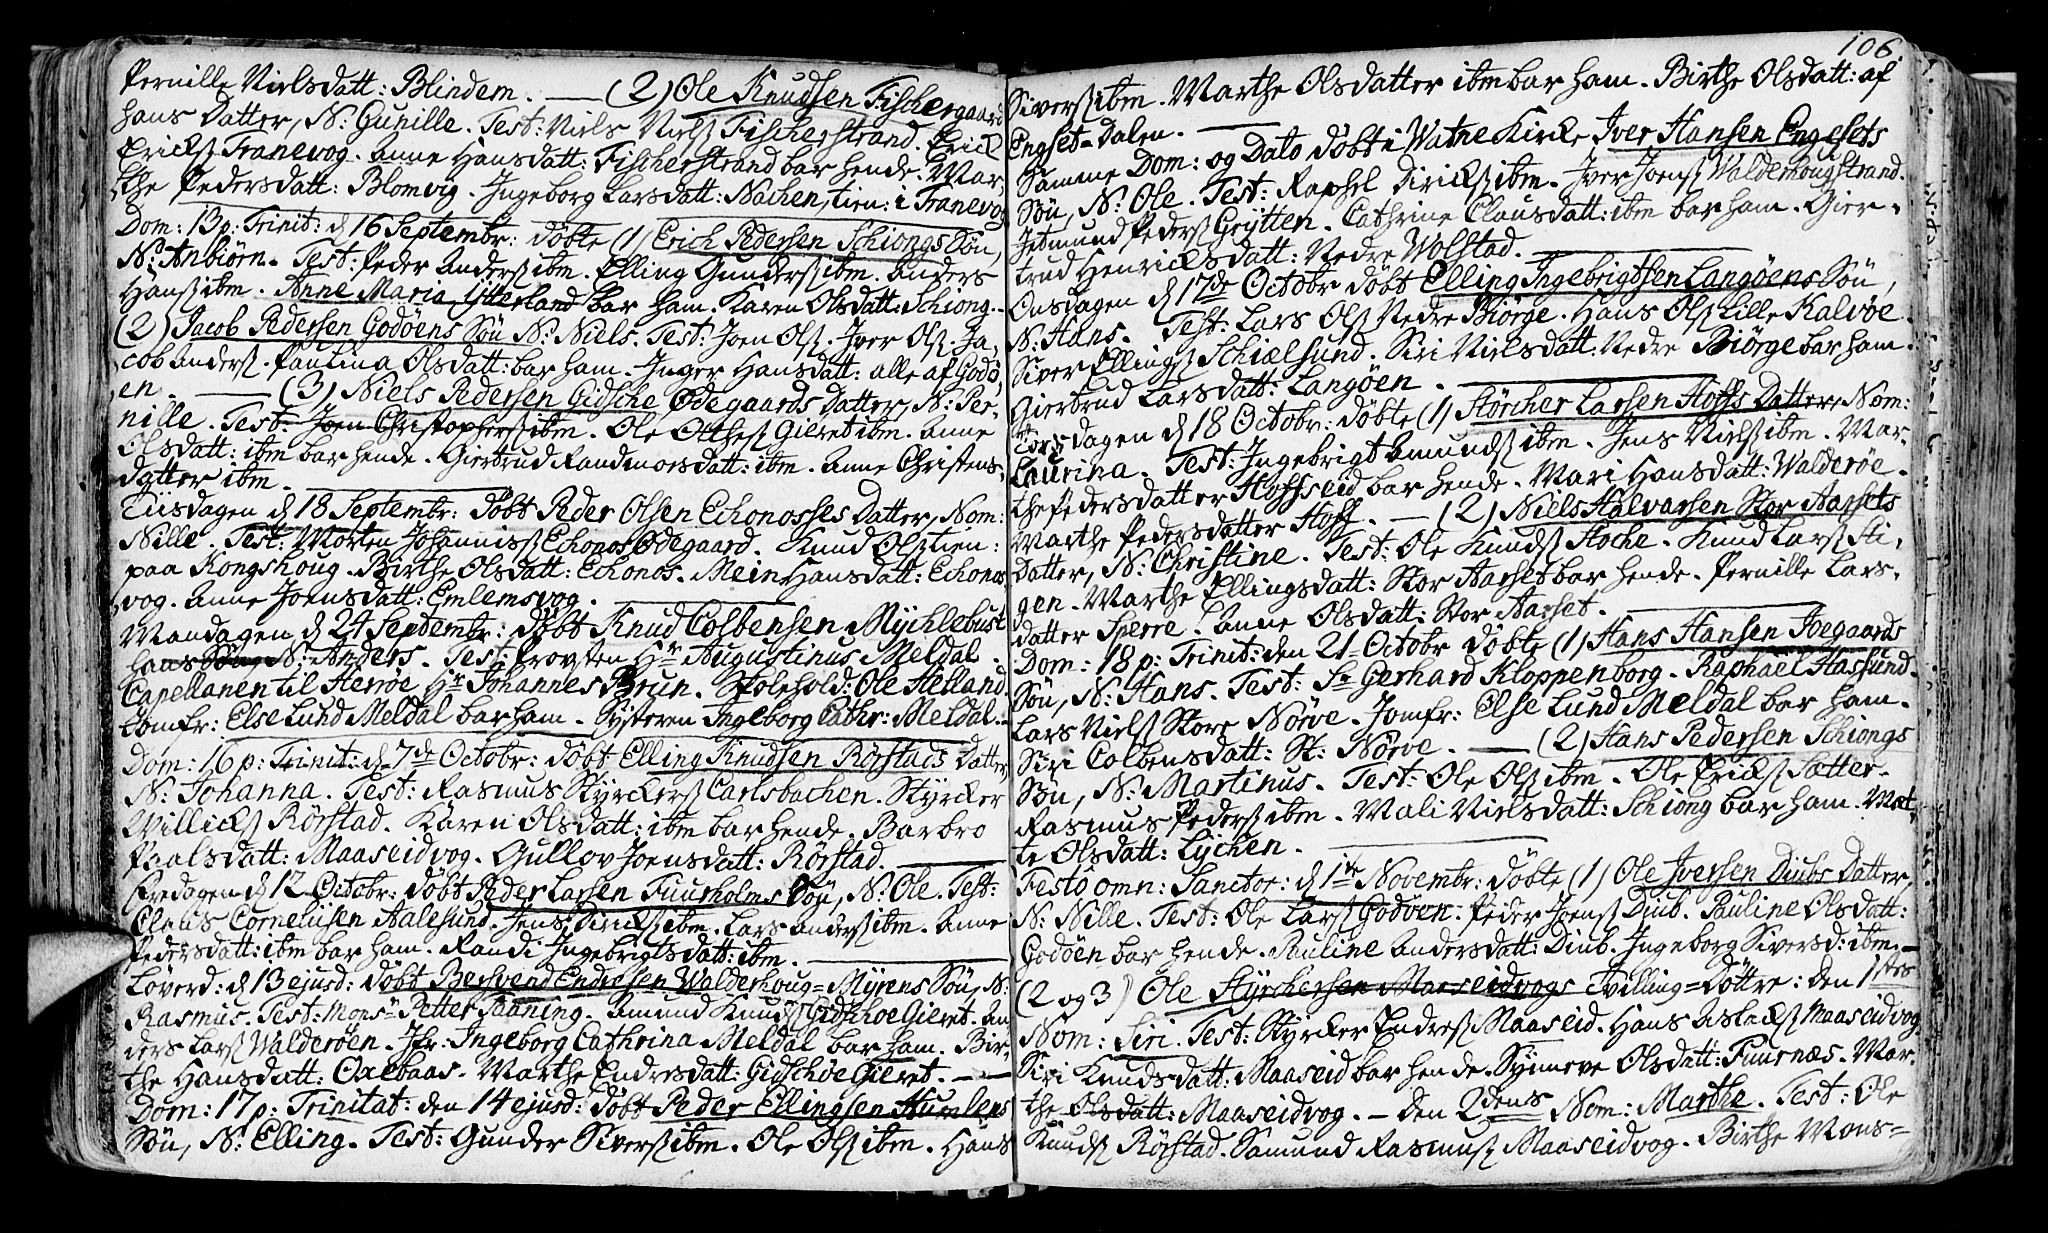 Pernille Nielsdatt: Blindem. — (2) Ole Knudsen Fischergaard
hans Datter, N: Gunille. Test: Niels Niels Fischerstrand. Erick
Ericks Tranevog. Anne Hansdatt: Fischerstrand bar hende. Mar,
the Pedersdatt: Blomvig. Ingeborg Larsdatt: Nachen, tien: i Tranevog
Dom: 13 p: Trinit: d 16 Septembr: døbte (1) Erich Pedersen Schiongs Søn,
N: Anbiørn. Test: Peder Anders ibm. Elling Gunders ibm. Anders
Hans ibm. Anne Maria Ytterland bar ham. Karen Olsdatt: Schiong.
(2) Jacob Pedersen Godøens Søn N: Niels. Test: Joen Ols. Iver Ols. Ja,
cob Anders. Paulina Olsdatt: bar ham. Inger Hansdatt: alle af Godø,
en. — (3) Niels Pedersen Gidsche Ødegaards Datter, N: Per-
nille. Test: Joen Christophers ibm. Ole Otthes Gieret ibm. Anne
Olsdatt: ibm bar hende. Giertrud Randmorsdatt: ibm. Anne Christens,
datter ibm.
Tiisdagen d 18 Septembr: døbt Peder Olsen Echonosses Datter, Nom:
Nille. Test: Morten Johanniss Echonos Ødegaard. Knud Ols tien:
paa Kongshoug. Birthe Olsdatt: Echonos. Mein Hansdatt: Echonos
vog. Anne Joensdatt: Emlemsvog.
Mandagen d 24 Septembr: døbt Knud Colbensen Mychlebust
hans Søn N: Anders. Test: Provsten Hr Augustinus Meldal.
Capellanen til Herrøe Hr Johannes Brun. Skolehold: Ole Hetland.
Jomfr: Else Lund Meldal bar ham. Systeren Ingeborg Cathr: Meldal.
Dom: 16 p: Trinit: d 7de Octobr: døbt Elling Knudsen Rørstads Datter
N: Johanna. Test: Rasmus Styrckers Carlsbachen. Styrcker
Willicks Rørstad. Karen Olsdatt: ibm bar hende. Barbro
Paalsdatt: Maaseidvog. Gullov Joensdatt: Rørstad.
Fredagen d 12 Octobr: døbt Peder Larsen Fuurholms Søn, N: Ole. Test:
Claus Corneliisen Aalesund. Jens Diricks ibm. Lars Anders ibm. Anne
Pedersdatt: ibm bar ham. Randi Ingebrigtsdatt: ibm.
Løverd: d 13 ejusd: døbt Bersvend Endresen Walderhoug=Myrens Søn, N:
Rasmus. Test: Monsr Petter Saaning. Amund Knuds Gidschøe Gieret. An,
ders Lars Walderøen. Jfr: Ingeborg Cathrina Meldal bar ham. Bir,
the Hansdatt: Oxebaas. Marthe Endresdatt: Gidschøe Gieret.
Dom: 17 p: Trinitat: den 14 ejusd: døbt Peder Ellingsen Humlens
Søn, N: Elling. Test: Gunder Sivers ibm. Ole Ols ibm. Hans
106
Sivers ibm. Marthe Olsdatter ibm bar ham. Birthe Olsdatt: af
Engset=Dalen.
Samme Dom: og Dato døbt i Watne Kirke Iver Hansen Engesets
Søn, N: Ole. Test: Raphel Diricks ibm. Iver Joens Walderhougstrand.
Jetmund Peders Grytten. Cathrine Clausdatt: ibm bar ham. Gier,
trud Henricksdatt: Nedre Wolstad.
Onsdagen d 17de Octobr døbt Elling Ingebrigtsen Langøens Søn,
N: Hans. Test: Lars Ols Nedre Biørge. Hans Ols Lille Kalvøe.
Siver Ellings Schiælsund. Siri Nielsdatt: Nedre Biørge bar ham.
Giertrud Larsdatt: Langøen.
Torsdagen d 18 Octobr: døbte (1) Størcher Larsen Hoffs Datter, Nom:
Laurina. Test: Ingebrigt Amunds ibm. Jens Niels ibm. Mar,
the Pedersdatter Hoffseid bar hende. Mari Hansdatt: Walderøe.
Marthe Pedersdatter Hoff. — (2) Niels Halvarsen Stor Aarsets
Datter, N: Christine. Test: Ole Knuds Hoche. Knud Lars Sti,
gen. Marthe Ellingsdatt: Stor Aarset bar hende. Pernille Lars,
datter Sperre. Anne Olsdatt: Stor Aarset.
Dom: 18 p: Trinit: den 21 Octobr døbte (1) Hans Hansen Hoegaards
Søn, N: Hans. Test: Sr Gerhard Kloppenborg. Raphael Hassund.
Lars Niels Store Nørve. Jomfr: Else Lund Meldal bar ham.
Siri Colbensdatt: St: Nørve. — (2) Hans Pedersen Schiongs
Søn, N: Martinus. Test: Ole Ols ibm. Ole Ericks Sætter.
Rasmus Peders ibm. Mali Nielsdatt: Schiong bar ham. Met,
te Olsdatt: Lychen.
Festo omn: Sanctor: d 1te Novembr: døbte (1) Ole Iversen Diubs Datter,
N: Nille. Test: Ole Lars Godøen. Peder Joens Diub. Pauline Olsdatt:
Godøen bar hende. Pauline Andersdatt: Diub. Ingeborg Siversd: ibm.
(2 og 3) Ole Styrchersen Maaseidvogs Tvilling=Døttre: den 1stes
Nom: Siri. Test: Styrcker Endres Maaseid. Hans Aslacks Maaseidvog
Siri Knudsdatt: Maaseid bar hende. Synneve Olsdatt: Fuurnæs. Mar,
the Olsdatt: Maaseidvog. — den 2dens Nom: Marthe. Test: Ole
Knuds Rørstad. Samund Rasmus Maaseidvog. Birthe Mons=